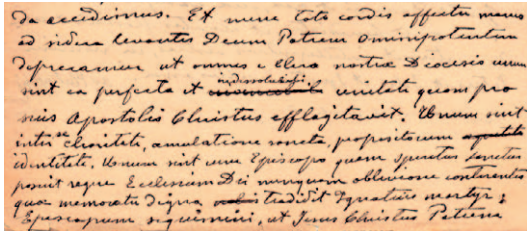 da accedimus. Et nunc toto cordis affectu manus
ad sidera levantes Deum Patrem omnipotentem
deprecamur ut omnes e Clero nostrae Diocesis unum
indissolubili
sint ea perfecta et unitate quam pro
suis Apostolis Christus efflagitavit. Unum sint
inter se charitate, aemulatione sancta, propositorum
identitate. Unum sint cum Episcopo quem Spiritus Sanctus
posuit regere Ecclesiam Dei nunquam oblivione conterentes
quae memoratu digna tradidit Ignatius martyr:
Episcopum sequimini, ut Jesus Christus Patrem